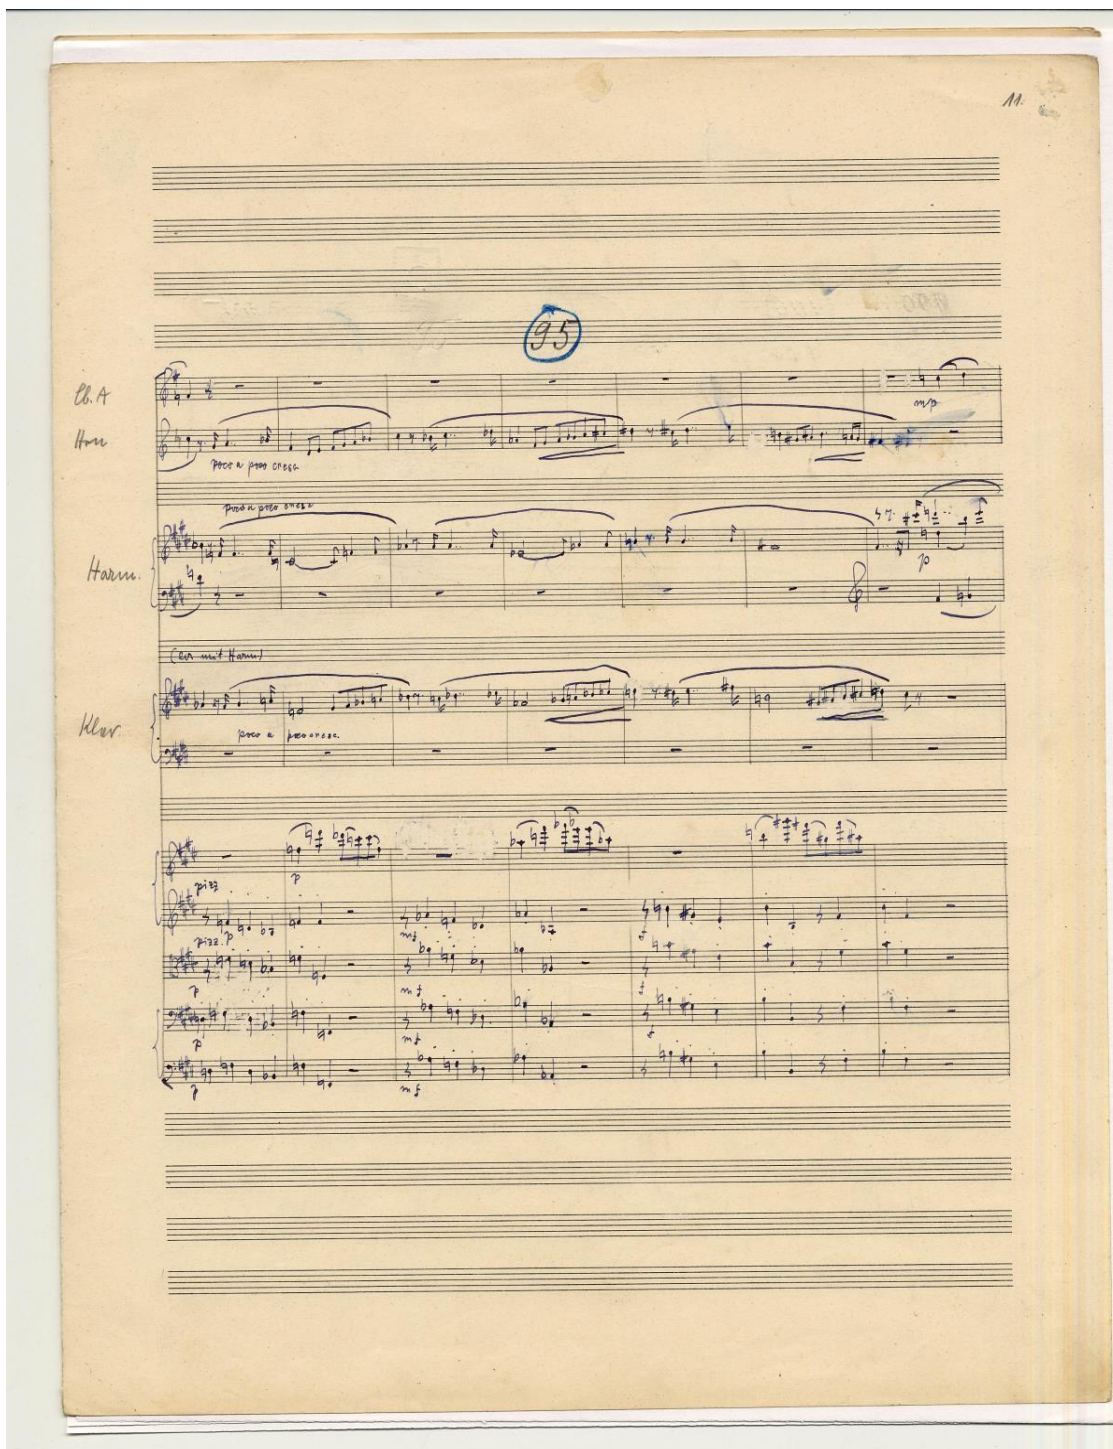 11.
95
Cl. A
mp
Hrn
poco a poco cresc
poco a poco cresc
Harm.
p
(Cor mit Harm)
Klav.
poco a poco cresc.
p
pizz
mf
f
pizz. p
p
mf
f
p
mf
f
p
mf